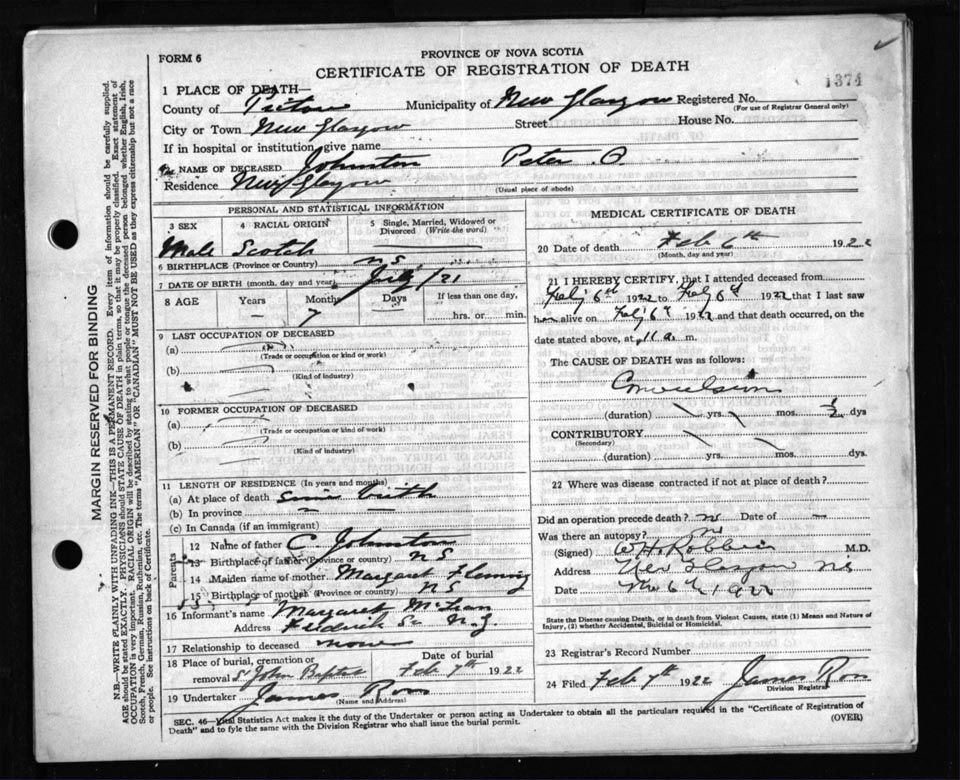 FORM 6
PROVINCE OF NOVA SCOTIA
CERTIFICATE OF REGISTRATION OF DEATH
1374
1 PLACE OF DEATH—
County of Pictou Municipality of New Glasgow Registered No.
(For use of Registrar General only)
City or Town New Glasgow Street House No.
If in hospital or institution, give name
2 NAME OF DECEASED Johnston Peter
Residence New Glasgow
(Usual place of abode)
PERSONAL AND STATISTICAL INFORMATION
3 SEX 4 RACIAL ORIGIN 5 Single, Married, Widowed or Divorced (Write the word)
Male Scotch
6 BIRTHPLACE (Province or Country) NS
7 DATE OF BIRTH (month, day and year) July /21
8 AGE Years Months Days If less than one day,
— 7 — hrs. or min.
9 LAST OCCUPATION OF DECEASED
(a)
(Trade or occupation or kind or work)
(b)
(Kind of industry)
10 FORMER OCCUPATION OF DECEASED
(a)
(Trade or occupation or kind of work)
(b)
(Kind of industry)
11 LENGTH OF RESIDENCE (In years and months)
(a) At place of death Since birth
(b) In province — —
(c) In Canada (if an immigrant)
Parents
12 Name of father C Johnston
13 Birthplace of father (Province or country) NS
14 Maiden name of mother Margaret Fleming
15 Birthplace of mother (Province or country) NS
16 Informant's name Margaret McLean
Address Frederick St N.G.
17 Relationship to deceased none
18 Place of burial, cremation or removal St John Baptist Date of burial Feb 7th 1922
19 Undertaker James Ross
(Name and Address)
MEDICAL CERTIFICATE OF DEATH
20 Date of death Feb 6th 1922
(Month, day and year)
21 I HEREBY CERTIFY, that I attended deceased from
Feby 6th 1922 to Feby 6th 1922 that I last saw
him alive on Feby 6th 1922 and that death occurred, on the
date stated above, at 11 a. m.
The CAUSE OF DEATH was as follows:
Convulsions
(duration) yrs. mos. ½ dys
CONTRIBUTORY
(Secondary)
(duration) yrs. mos. dys.
22 Where was disease contracted if not at place of death?
Did an operation precede death? no Date of —
Was there an autopsy? no
(Signed) M.D.
Address New Glasgow NS
Date 6th 1922
State the Disease causing Death, or in death from Violent Causes, state (1) Means and Nature of Injury, (2) whether Accidental, Suicidal or Homicidal.
23 Registrar's Record Number
24 Filed Feb 7th 1922 James Ross
Division Registrar
SEC. 46—Vital Statistics Act makes it the duty of the Undertaker or person acting as Undertaker to obtain all the particulars required in the "Certificate of Registration of
Death" and to fyle the same with the Division Registrar who shall issue the burial permit.
(OVER)
MARGIN RESERVED FOR BINDING
N.B.—WRITE PLAINLY WITH UNFADING INK—THIS IS A PERMANENT RECORD. Every item of information should be carefully supplied.
AGE should be stated EXACTLY. PHYSICIANS should STATE CAUSE OF DEATH in plain terms, so that it may be properly classified. Exact statement of
OCCUPATION is very important. RACIAL ORIGIN will be described by stating to what people or tongue the deceased person belonged, whether English, Irish,
Scotch, French, German, Russian, Ruthenian, etc. The terms "AMERICAN" OR "CANADIAN" MUST NOT BE USED as they express citizenship but not a race
or people. See instructions on back of Certificate.